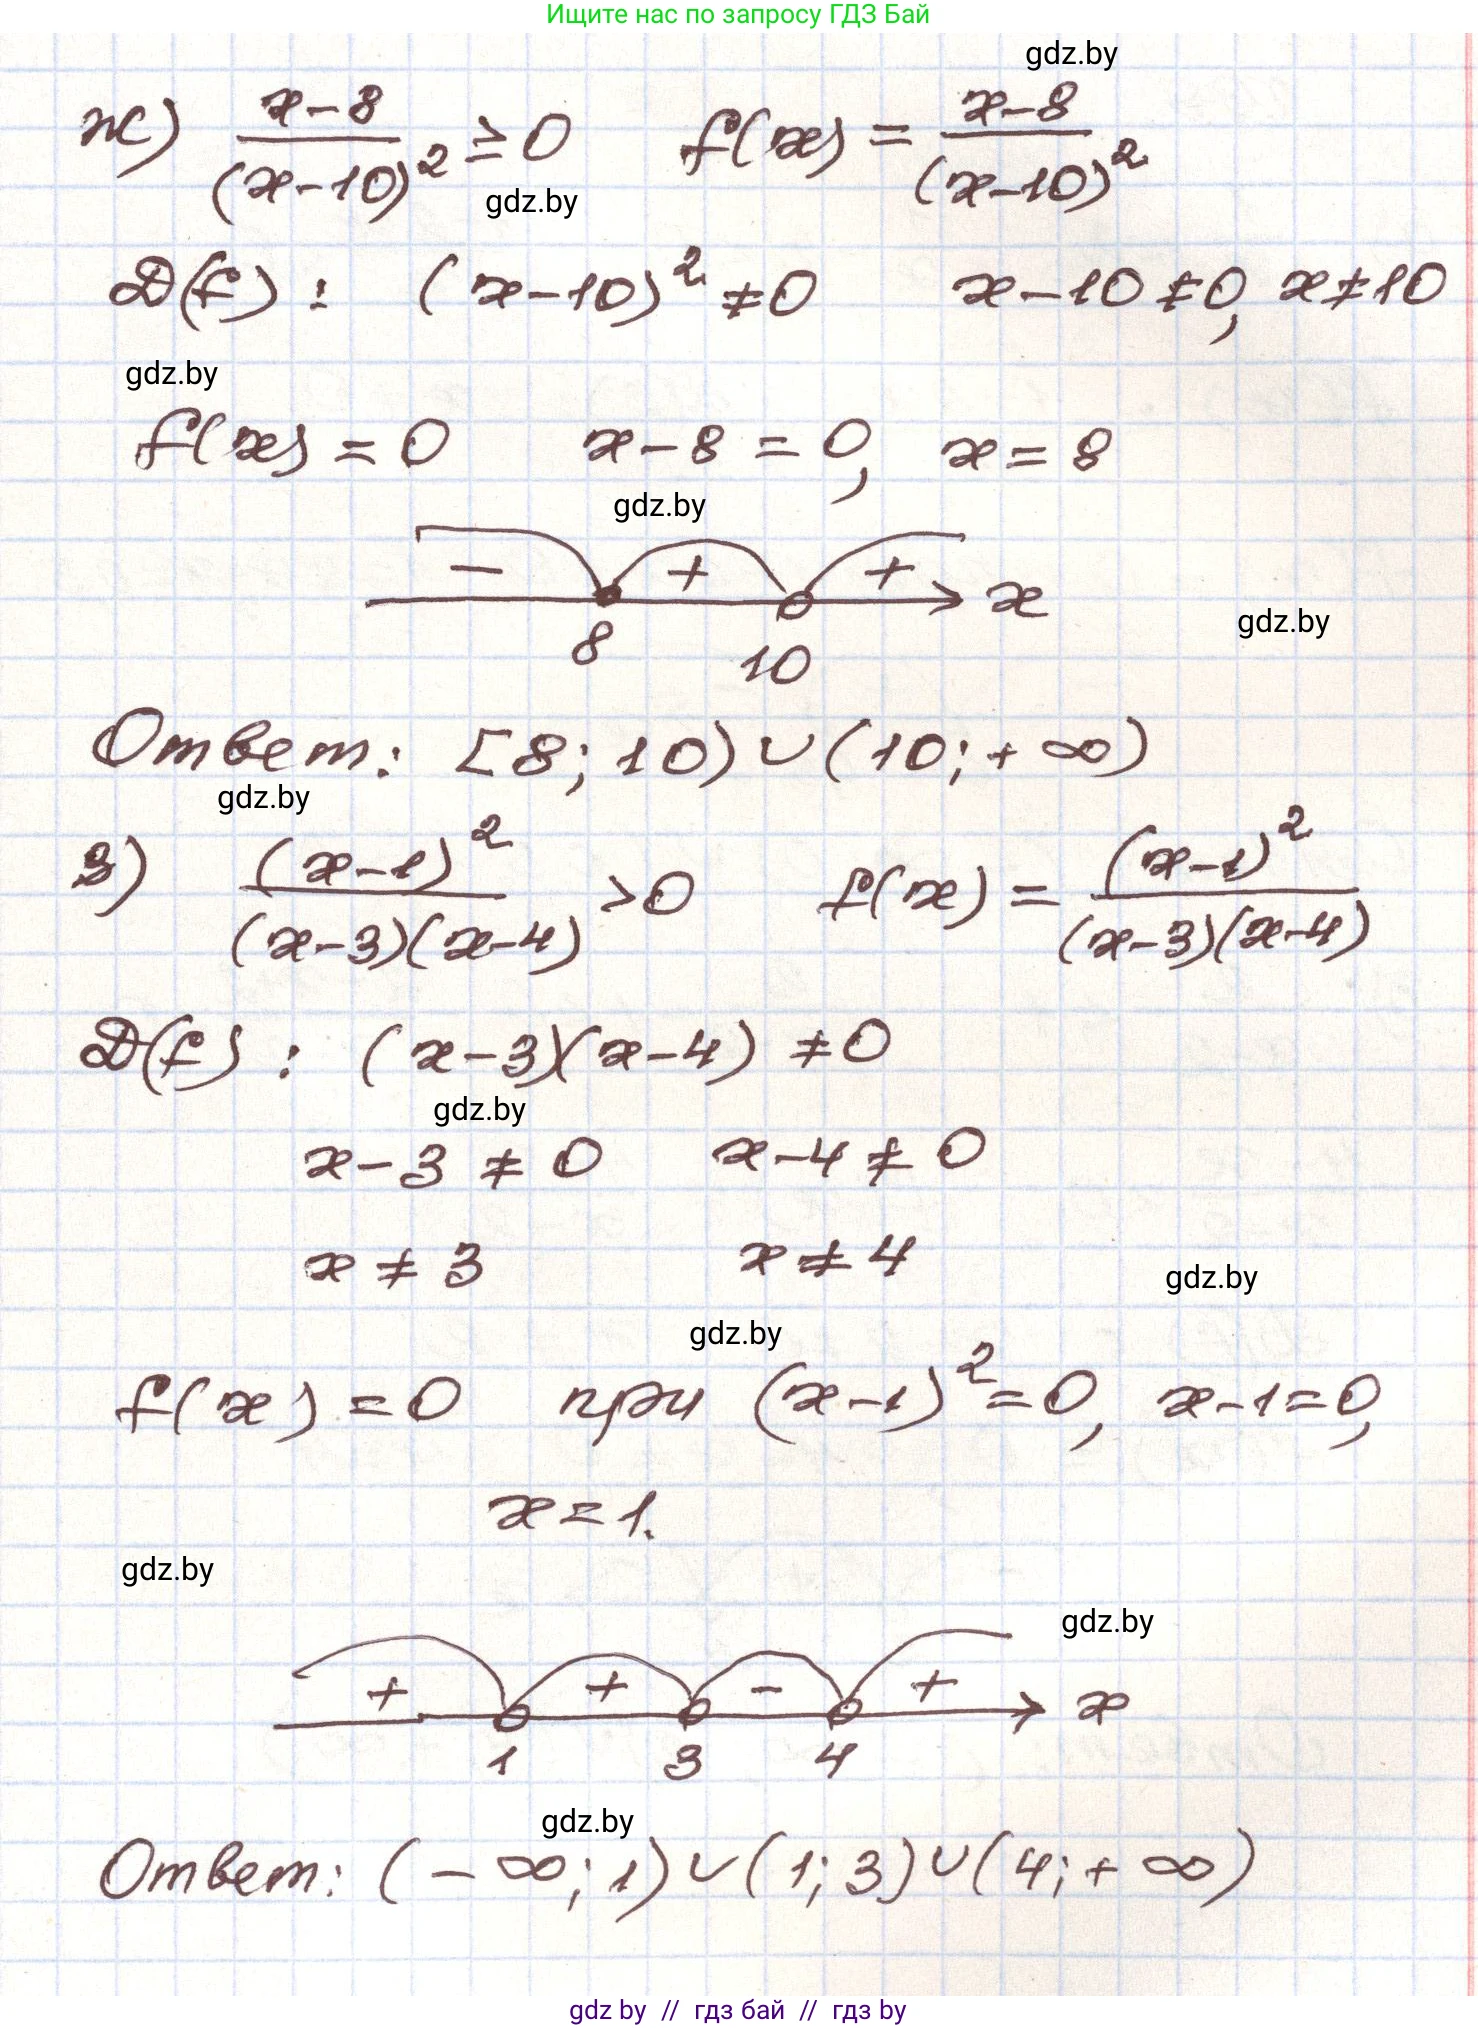 Ищите нас по запросу ГДЗ Бай
gdz.by
ж) (x-8)/(x-10)² ≥ 0 f(x) = (x-8)/(x-10)²
gdz.by
D(f): (x-10)² ≠ 0 x-10 ≠ 0, x ≠ 10
gdz.by
f(x) = 0 x-8 = 0, x = 8
gdz.by
- + + x
gdz.by
8 10
Ответ: [8; 10) ∪ (10; +∞)
gdz.by
з) (x-1)²/(x-3)(x-4) > 0 f(x) = (x-1)²/(x-3)(x-4)
D(f): (x-3)(x-4) ≠ 0
gdz.by
x-3 ≠ 0 x-4 ≠ 0
x ≠ 3 x ≠ 4
gdz.by
gdz.by
f(x) = 0 при (x-1)² = 0, x-1 = 0,
x = 1.
gdz.by
gdz.by
+ + - + x
1 3 4
gdz.by
Ответ: (-∞; 1) ∪ (1; 3) ∪ (4; +∞)
gdz by // гдз бай // гдз by